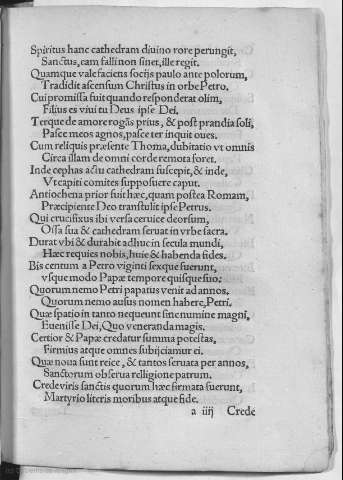 Spiritus hanc cathedram diuino rore perungit,
Sanctus, eam falli non sinet, ille regit.
Quamque valefaciens socijs paulo ante polorum,
Tradidit ascensum Christus in orbe Petro.
Cui promissa fuit quando responderat olim,
Filius es viui tu Deus ipse Dei.
Terque de amore rogãs prius, & post prandia soli,
Pasce meos agnos, pasce ter inquit oues.
Cum reliquis præsente Thoma, dubitatio vt omnis
Circa illam de omni corde remota foret.
Inde cephas actu cathedram suscepit, & inde,
Vt capiti comites supposuere caput.
Antiochena prior fuit hæc, quam postea Romam,
Præcipiente Deo transtulit ipse Petrus.
Qui crucifixus ibi versa ceruice deorsum,
Ossa sua & cathedram seruat in vrbe sacra.
Durat vbi & durabit adhuc in secula mundi,
Hæc requies nobis, huic & habenda fides.
Bis centum a Petro viginti sexque fuerunt,
vsque modo Papæ tempore quisque suo.
Quorum nemo Petri papatus venit ad annos.
Quorum nemo ausus nomen habere, Petri.
Quæ spatio in tanto nequeunt sine numine magni,
Euenisse Dei, Quo veneranda magis.
Certior & Papæ credatur summa potestas,
Firmius atque omnes subijciamur ei.
Quæ noua sunt reice, & tantos seruata per annos,
Sanctorum obserua relligione patrum.
Crede viris sanctis quorum hæc firmata fuerunt,
Martyrio literis moribus atque fide.
a iiij Crede